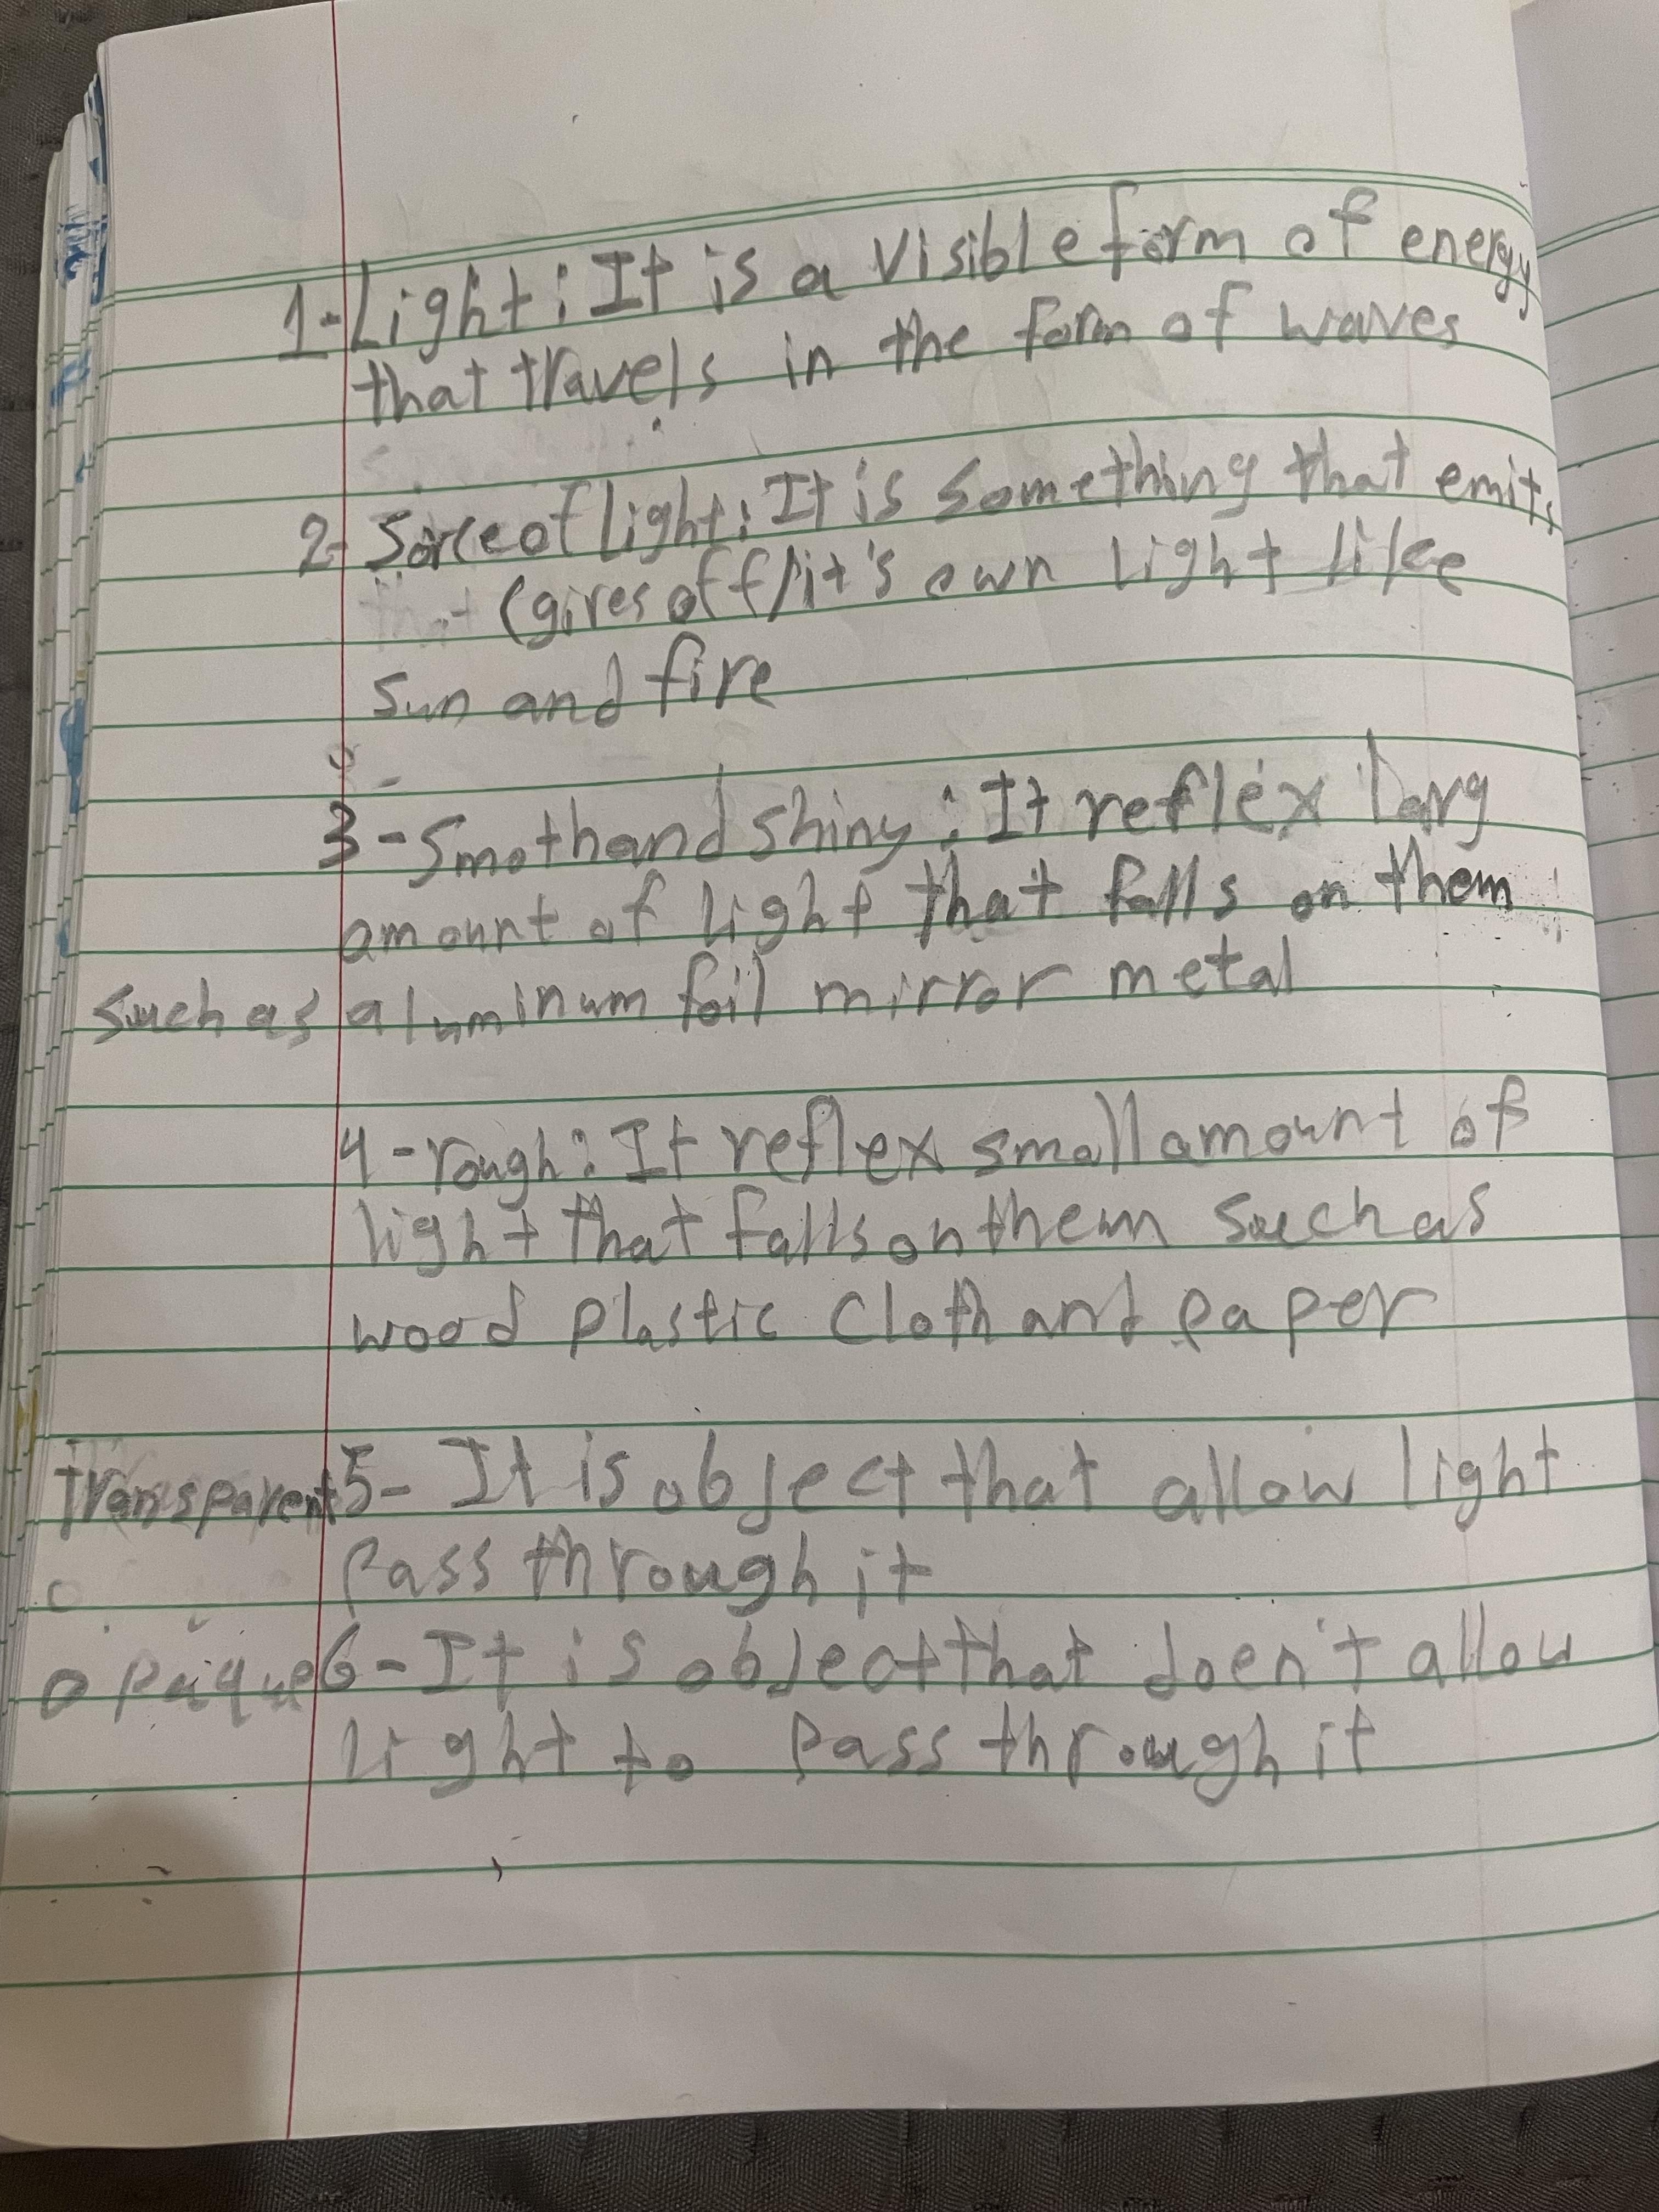 1-Light: It is a visible form of energy
that travels in the form of waves
2- Sorce of light: It is something that emits
(gives off) it's own light like
sun and fire
3-Smoth and shiny: It reflex larg
amount of light that falls on them
such as aluminum foil mirror metal
4-rough: It reflex small amount of
light that falls on them such as
wood plastic cloth and paper
Transparent 5- It is object that allow light
pass through it
opaique 6-It is object that doen't allow
light to pass through it